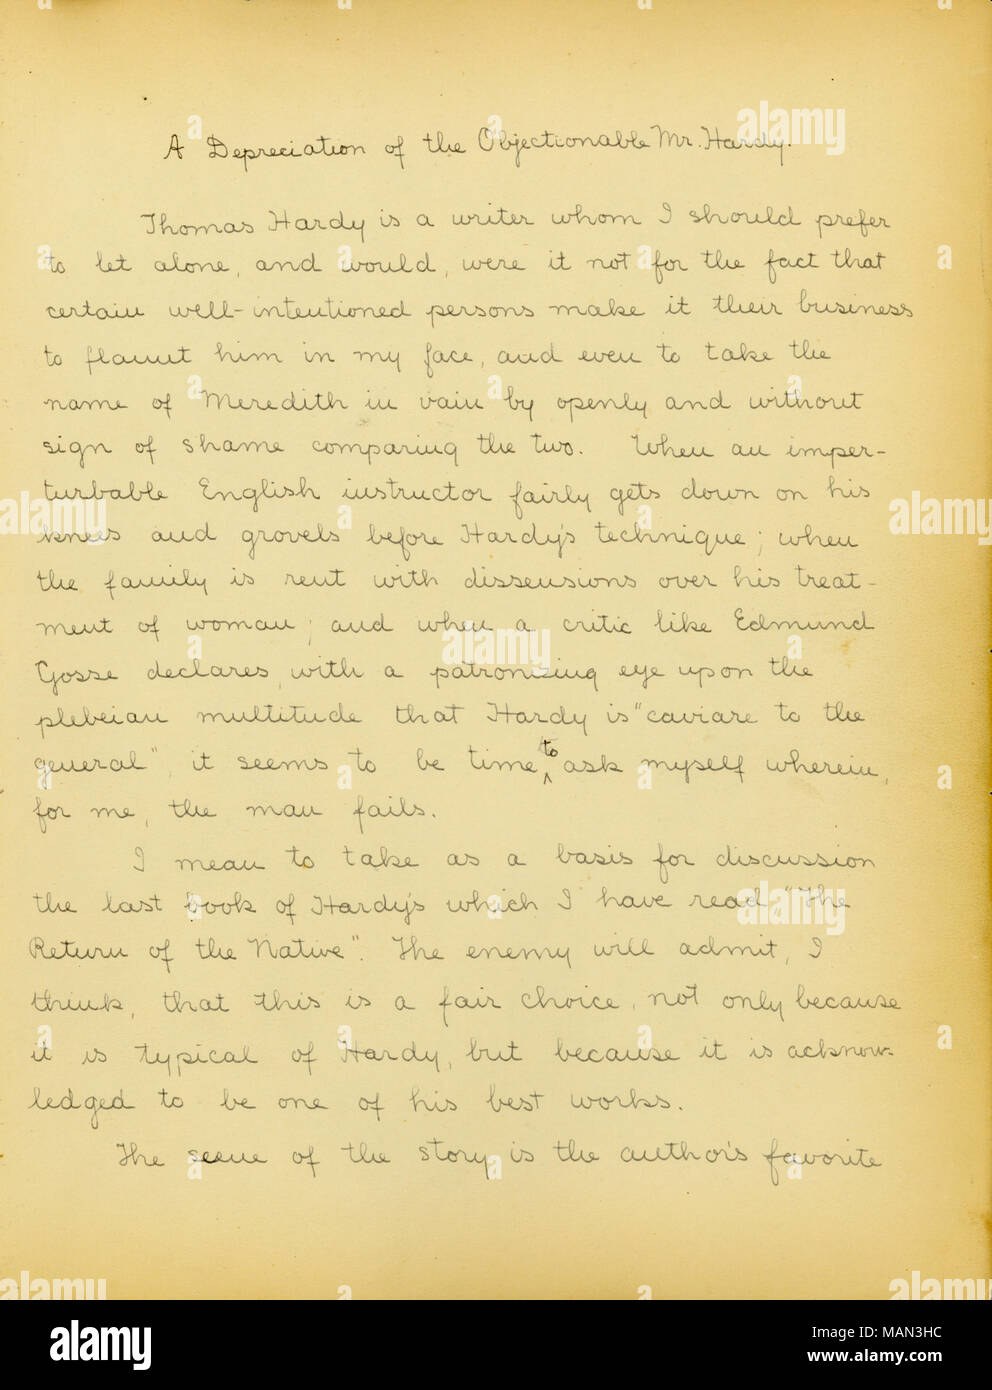 A Depreciation of the Objectionable Mr. Hardy.
Thomas Hardy is a writer whom I should prefer
to let alone, and would, were it not for the fact that
certain well-intentioned persons make it their business
to flaunt him in my face, and even to take the
name of Meredith in vain by openly and without
sign of shame comparing the two. When an imper-
turbable English instructor fairly gets down on his
knees and grovels before Hardy's technique; when
the family is rent with dissensions over his treat-
ment of woman; and when a critic like Edmund
Gosse declares, with a patronizing eye upon the
plebeian multitude that Hardy is "caviare to the
general", it seems to be time to ask myself wherein,
for me, the man fails.
I mean to take as a basis for discussion
the last book of Hardy's which I have read "The
Return of the Native". The enemy will admit, I
think, that this is a fair choice, not only because
it is typical of Hardy, but because it is acknow-
ledged to be one of his best works.
The scene of the story is the author's favorite
alamy
Image ID: MAN3HC
www.alamy.com